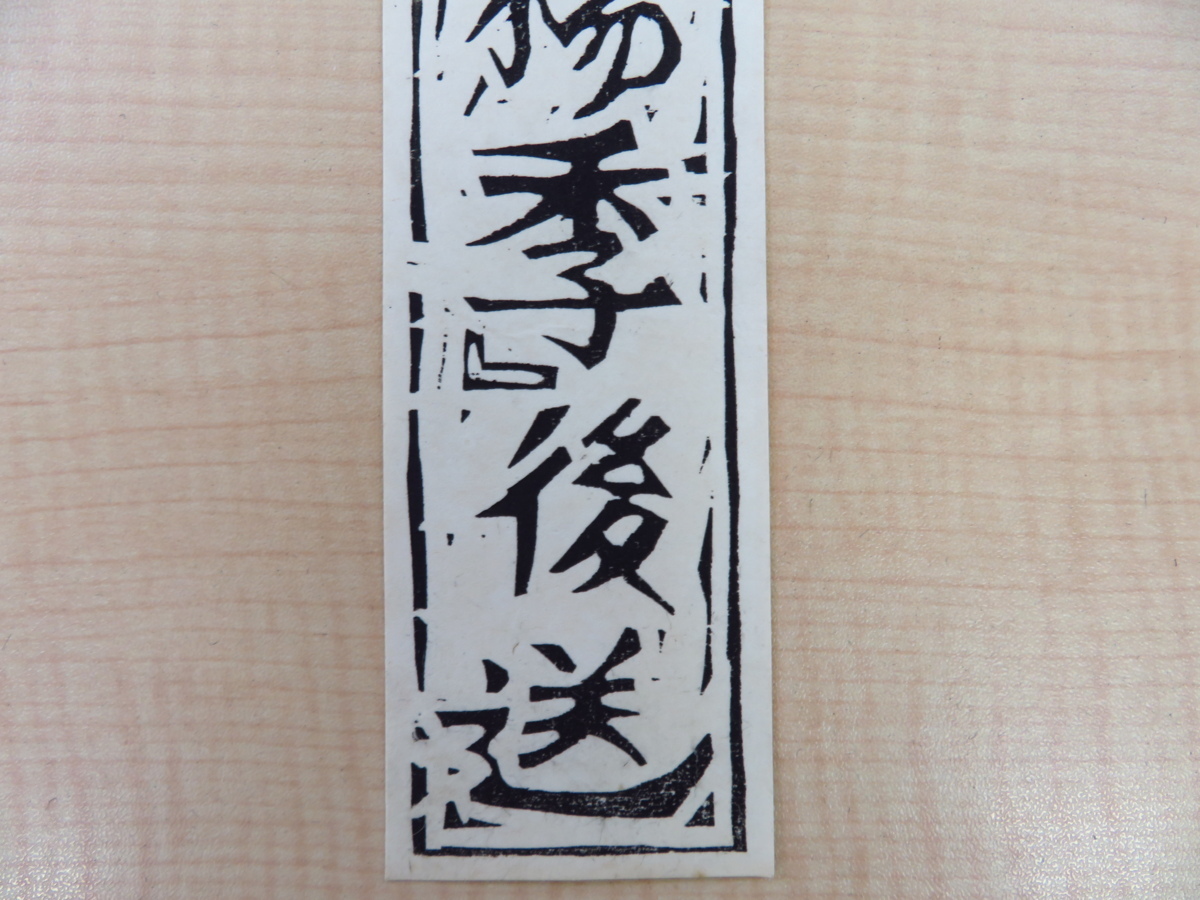 季』後送